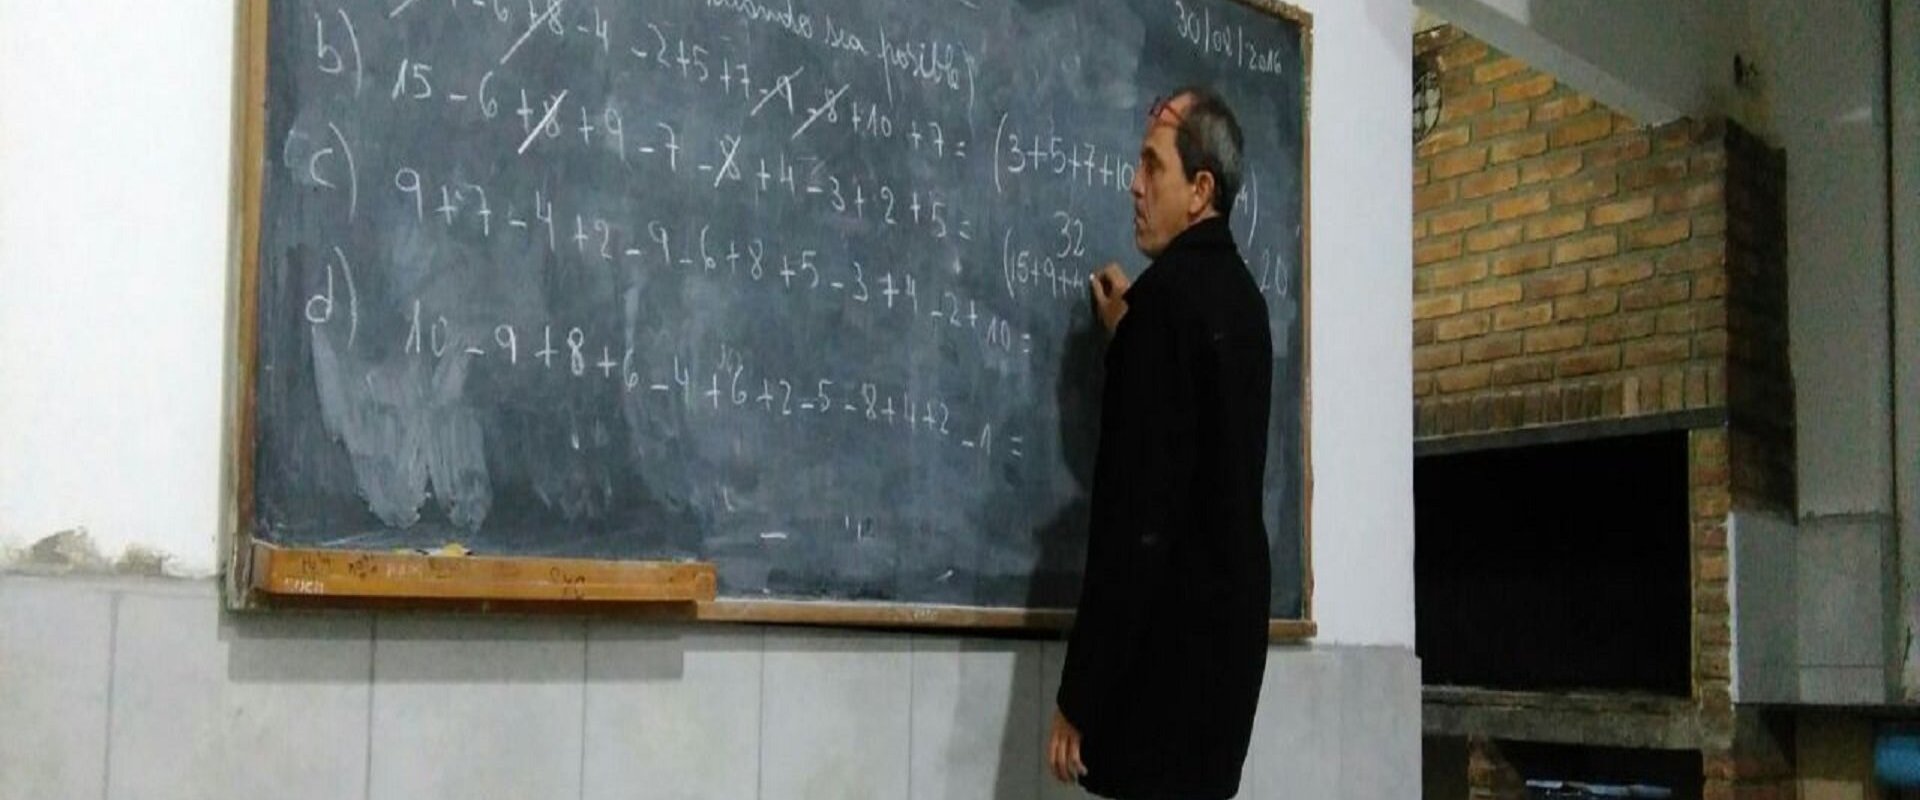 cuando sea posible)
30/08/2016
- 6 + 8 - 4 - 2 + 5 + 7 - 9 - 8 + 10 + 7 = (3+5+7+10
32
20
b) 15 - 6 + 8 + 9 - 7 - 8 + 4 - 3 + 2 + 5 = (15+9+4
c) 9 + 7 - 4 + 2 - 9 - 6 + 8 + 5 - 3 + 4 - 2 + 10 =
d) 10 - 9 + 8 + 6 - 4 + 6 + 2 - 5 - 8 + 4 + 2 - 1 =